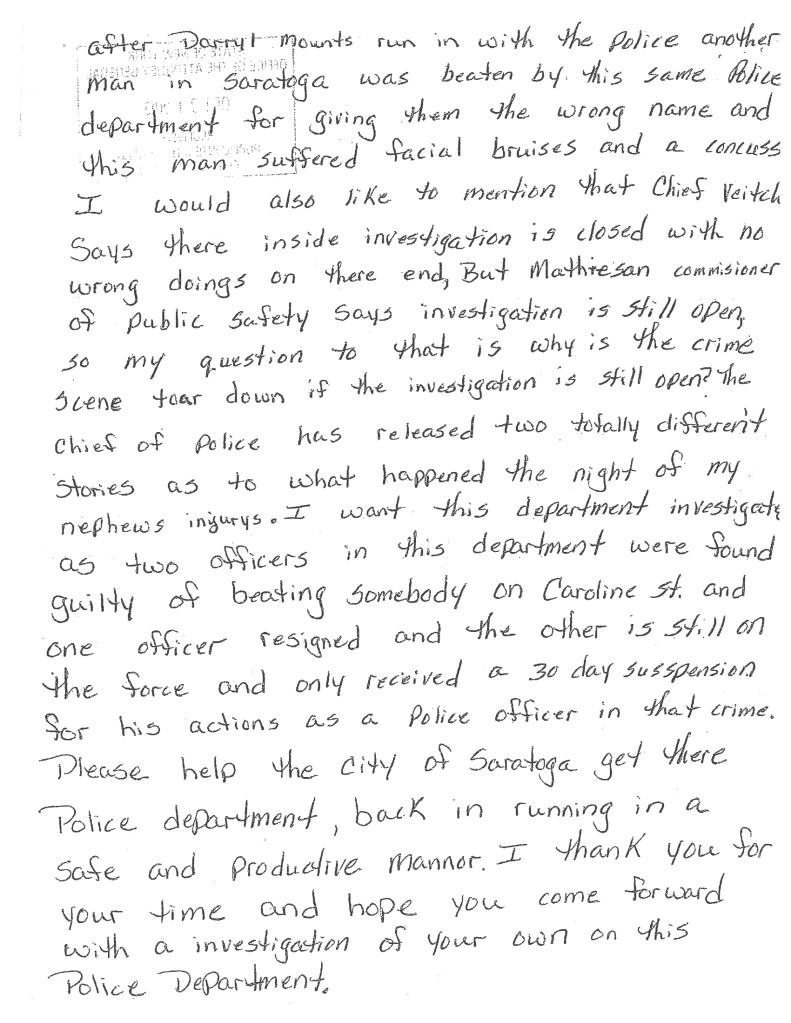 after Darryl Mounts run in with the Police another
man in Saratoga was beaten by this same Police
department for giving them the wrong name and
this man suffered facial bruises and a concuss
I would also like to mention that Chief Veitch
Says there inside investigation is closed with no
wrong doings on there end, But Mathiesan commisioner
of Public Safety Says investigation is still open,
so my question to that is why is the crime
scene toar down if the investigation is still open? The
Chief of Police has released two totally different
stories as to what happened the night of my
nephews injurys. I want this department investigate
as two officers in this department were found
guilty of beating somebody on Caroline St. and
one officer resigned and the other is still on
the force and only received a 30 day susspension
for his actions as a Police officer in that crime.
Please help the City of Saratoga get there
Police department, back in running in a
safe and productive mannor. I thank you for
your time and hope you come forward
with a investigation of your own on this
Police Department.